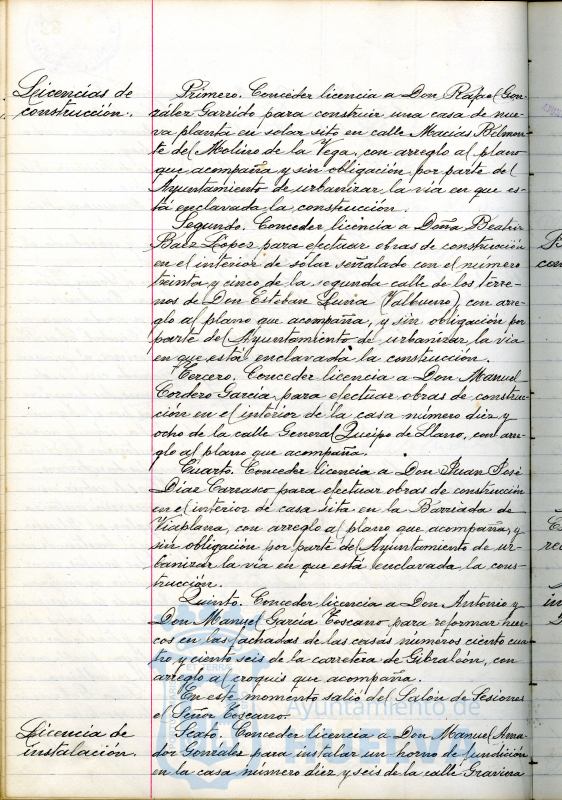 Licencias de
construcción.
Primero. Conceder licencia a Don Rafael Gon-
zález Garrido para construir una casa de nue-
va planta en solar sito en calle Macias Belmon-
te del Molino de la Vega, con arreglo al plano
que acompaña y sin obligación por parte del
Ayuntamiento de urbanizar la vía en que es-
tá enclavada la construcción.
Segundo. Conceder licencia a Doña Beatriz
Báez López para efectuar obras de construcción
en el interior de solar señalado con el número
treinta y cinco de la segunda calle de los terre-
nos de Don Esteban Luna (Valbueno), con arre-
glo al plano que acompaña, y sin obligación por
parte del Ayuntamiento de urbanizar la via
en que está enclavada la construcción.
Tercero. Conceder licencia a Don Manuel
Cordero García para efectuar obras de construc-
ción en el interior de la casa número diez y
ocho de la calle General Queipo de Llano, con arre-
glo al plano que acompaña.
Cuarto. Conceder licencia a Don Juan José
Díaz Carrasco para efectuar obras de construcción
en el interior de casa sita en la Barriada de
Viaplana, con arreglo al plano que acompaña, y
sin obligación por parte del Ayuntamiento de ur-
banizar la vía en que está enclavada la cons-
trucción.
Quinto. Conceder licencia a Don Antonio y
Don Manuel García Toscano para reformar hue-
cos en las fachadas de las casas números ciento cua-
tro y ciento seis de la carretera de Gibraleón, con
arreglo al croquis que acompaña.
En este momento salió del Salón de Sesiones
el Señor Toscano.
Licencia de
instalación.
Sexto. Conceder licencia a Don Manuel Ama-
dor Gonzáles para instalar un horno de fundición
en la casa número diez y seis de la calle Graviera
Ayuntamiento de